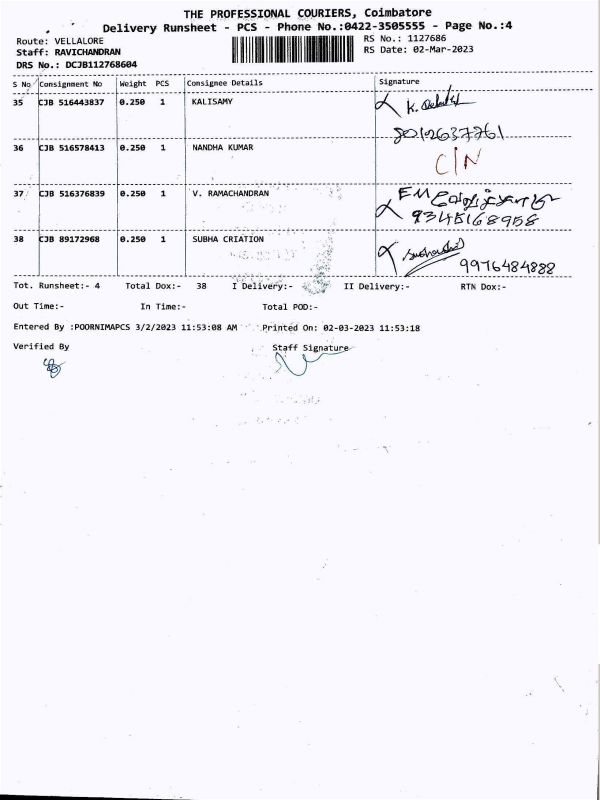 THE PROFESSIONAL COURIERS, Coimbatore
Delivery Runsheet - PCS - Phone No.:0422-3505555 - Page No.:4
Route: VELLALORE
RS No.: 1127686
Staff: RAVICHANDRAN
RS Date: 02-Mar-2023
DRS No.: DCJB112768604
S No Consignment No Weight PCS Consignee Details Signature
35 CJB 516443837 0.250 1 KALISAMY K.
8012637261
36 CJB 516578413 0.250 1 NANDHA KUMAR C/N
37 CJB 516376839 0.250 1 V. RAMACHANDRAN EM
9345168958
38 CJB 89172968 0.250 1 SUBHA CRIATION
9976484888
Tot. Runsheet:- 4 Total Dox:- 38 I Delivery:- II Delivery:- RTN Dox:-
Out Time:- In Time:- Total POD:-
Entered By :POORNIMAPCS 3/2/2023 11:53:08 AM Printed On: 02-03-2023 11:53:18
Verified By Staff Signature